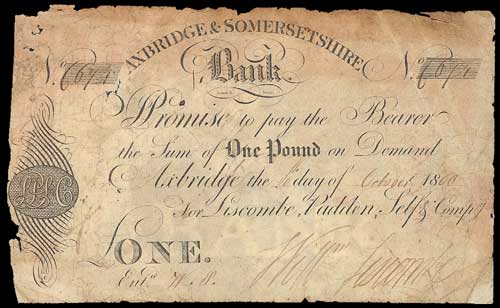 AXBRIDGE & SOMERSETSHIRE
No. 7671 Bank. No. 7671
I Promise to pay the Bearer
the Sum of One Pound on Demand
Axbridge the day of October 18
For Liscombe, Padden, Self & Compy
£ONE.
Entd. W. S.